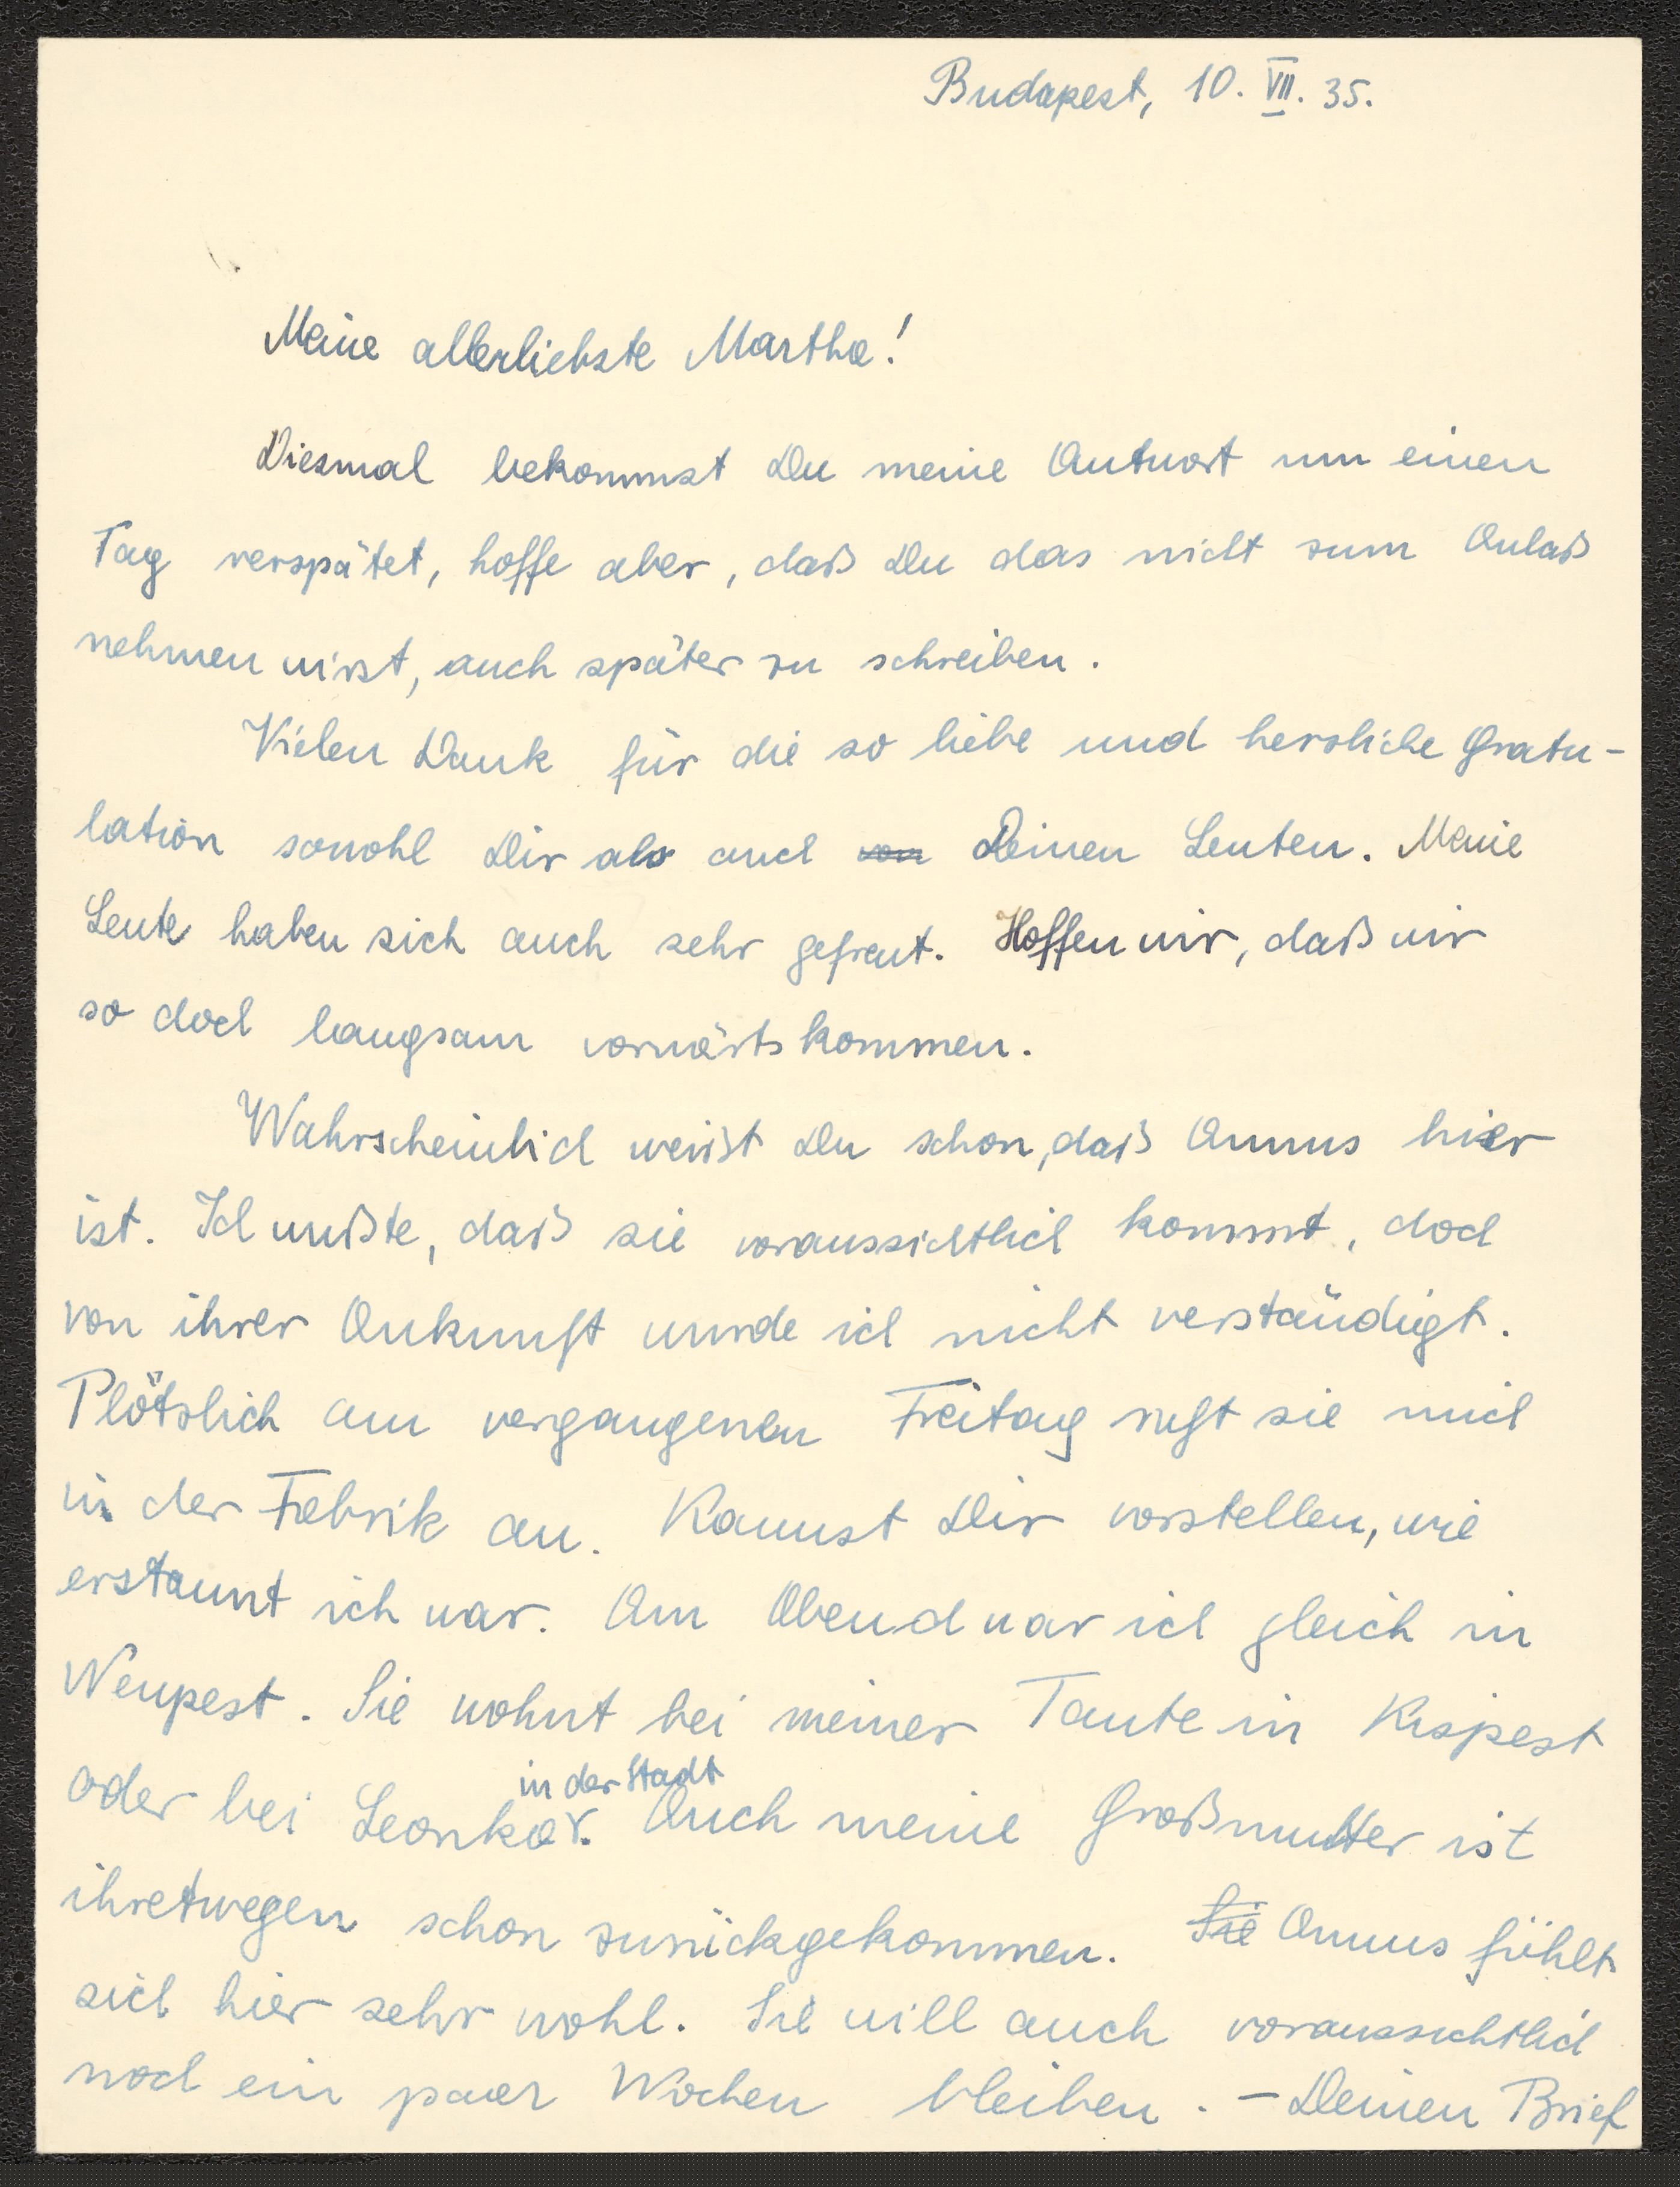 Budapest, 10. VII. 35.
Meine allerliebste Martha!
Diesmal bekommst Du meine Antwort um einen
Tag verspätet, hoffe aber, daß Du das nicht zum Anlaß
nehmen wirst, auch später zu schreiben.
Vielen Dank für die so liebe und herzliche Gratu-
lation sowohl Dir als auch von Deinen Leuten. Meine
Leute haben sich auch sehr gefreut. Hoffen wir, daß wir
so doch langsam vorwärts kommen.
Wahrscheinlich weißt Du schon, daß Annus hier
ist. Ich wußte, daß sie voraussichtlich kommt, doch
von ihrer Ankunft wurde ich nicht verständigt.
Plötzlich am vergangenen Freitag ruft sie mich
in der Fabrik an. Kannst Dir vorstellen, wie
erstaunt ich war. Am Abend war ich gleich in
Neupest. Sie wohnt bei meiner Tante in Kispest
in der Stadt
oder bei Leonka. Auch meine Großmutter ist
ihretwegen schon zurückgekommen. Sie Annus fühlt
sich hier sehr wohl. Sie will auch voraussichtlich
noch ein paar Wochen bleiben. - Deinen Brief